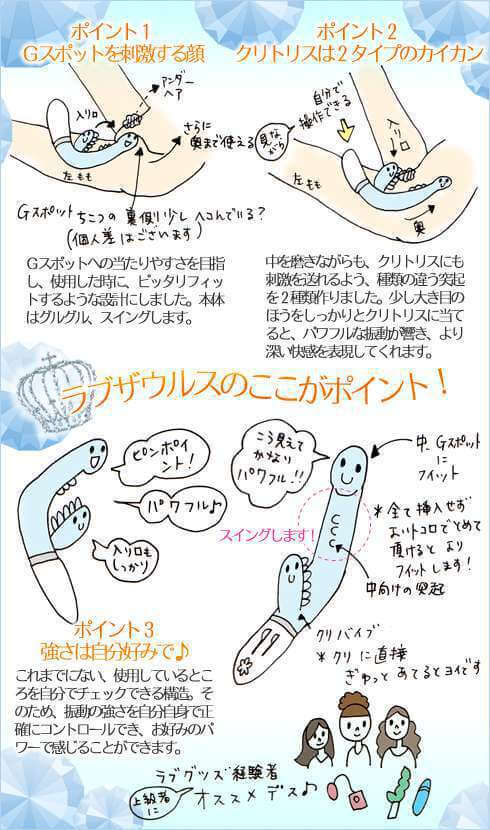 ポイント1
Gスポットを刺激する顔
アンダー
ヘア
入り口
さらに
奥まで使える
左もも
Gスポット ちこつの裏側少しヘコんでいる?
(個人差はございます)
Gスポットへの当たりやすさを目指
し、使用した時に、ピッタリフィッ
トするような設計にしました。本体
はグルグル、スイングします。
ポイント2
クリトリスは2タイプのカイカン
自分で
操作できる
見な
がら
入り口
左もも
奥
中を磨きながらも、クリトリスにも
刺激を送れるよう、種類の違う突起
を2種類作りました。少し大き目の
ほうをしっかりとクリトリスに当て
ると、パワフルな振動が響き、より
深い快感を表現してくれます。
ラブザウルスのここがポイント!
ピンポイ
ント!
パワフル♪
入り口も
しっかり
こう見えて
かなり
パワフル!!
スイングします!
中、Gスポット
に
フィット
*全て挿入せず
よいトコロでとめて
頂けると より
フィットします!
中向けの突起
クリバイブ
*クリに直接
ぎゅっと あてるとヨイです
ポイント3
強さは自分好みで♪
これまでにない、使用しているとこ
ろを自分でチェックできる構造。そ
のため、振動の強さを自分自身で正
確にコントロールでき、お好みのパ
ワーで感じることができます。
ラブグッズ経験者
上級者
に
オススメデス♪